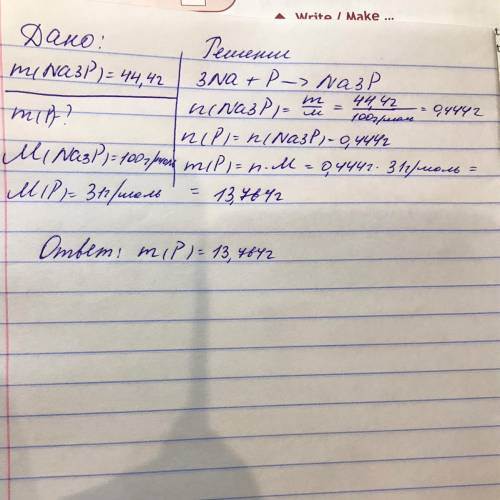 ▲ Write / Make ...
Дано:
m(Na3P)=44,4г
m(P)-?
M(Na3P)=100г/моль
M(P)=31г/моль
Решении
3Na + P —> Na3P
n(Na3P)= m/M = 44,4г/100г/моль = 0,444г
n(P)= n(Na3P)-0,444г
m(P)= n·M = 0,444г · 31г/моль =
= 13,764г
Ответ: m(P)= 13,764г